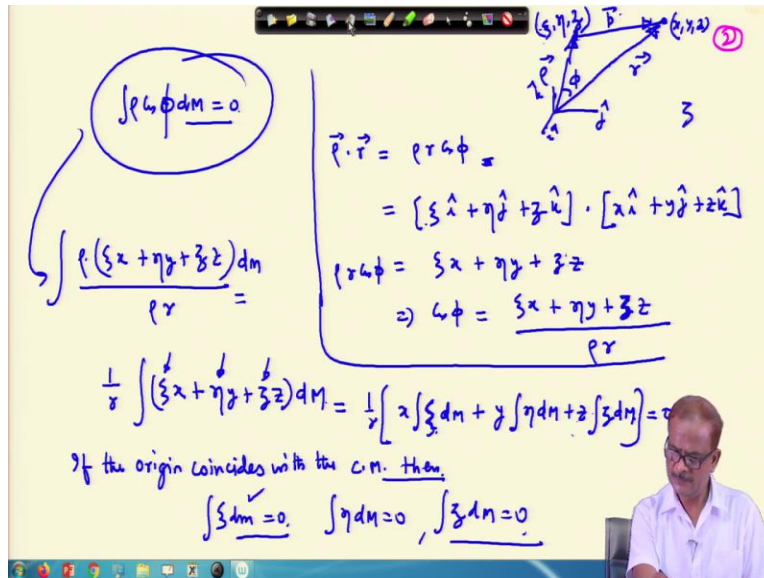 (ξ, η, ζ) b⃗ (x, y, z) ②
ρ⃗ ϕ r⃗
k̂ ĵ î
ζ
∫ρ cos ϕ dM = 0
ρ⃗ · r⃗ = ρ r cos ϕ =
= [ξ î + η ĵ + ζ k̂] · [x î + y ĵ + z k̂]
ρ r cos ϕ = ξx + ηy + ζz
⇒ cos ϕ = (ξx + ηy + ζz) / ρr
∫ ρ·(ξx + ηy + ζz) / ρr dm =
1/r ∫(ξx + ηy + ζz) dM = 1/r [x∫ξ dm + y∫η dm + z∫ζ dM] =
If the origin coincides with the C.M. then
∫ξ dm = 0. ∫η dM = 0, ∫ζ dm = 0